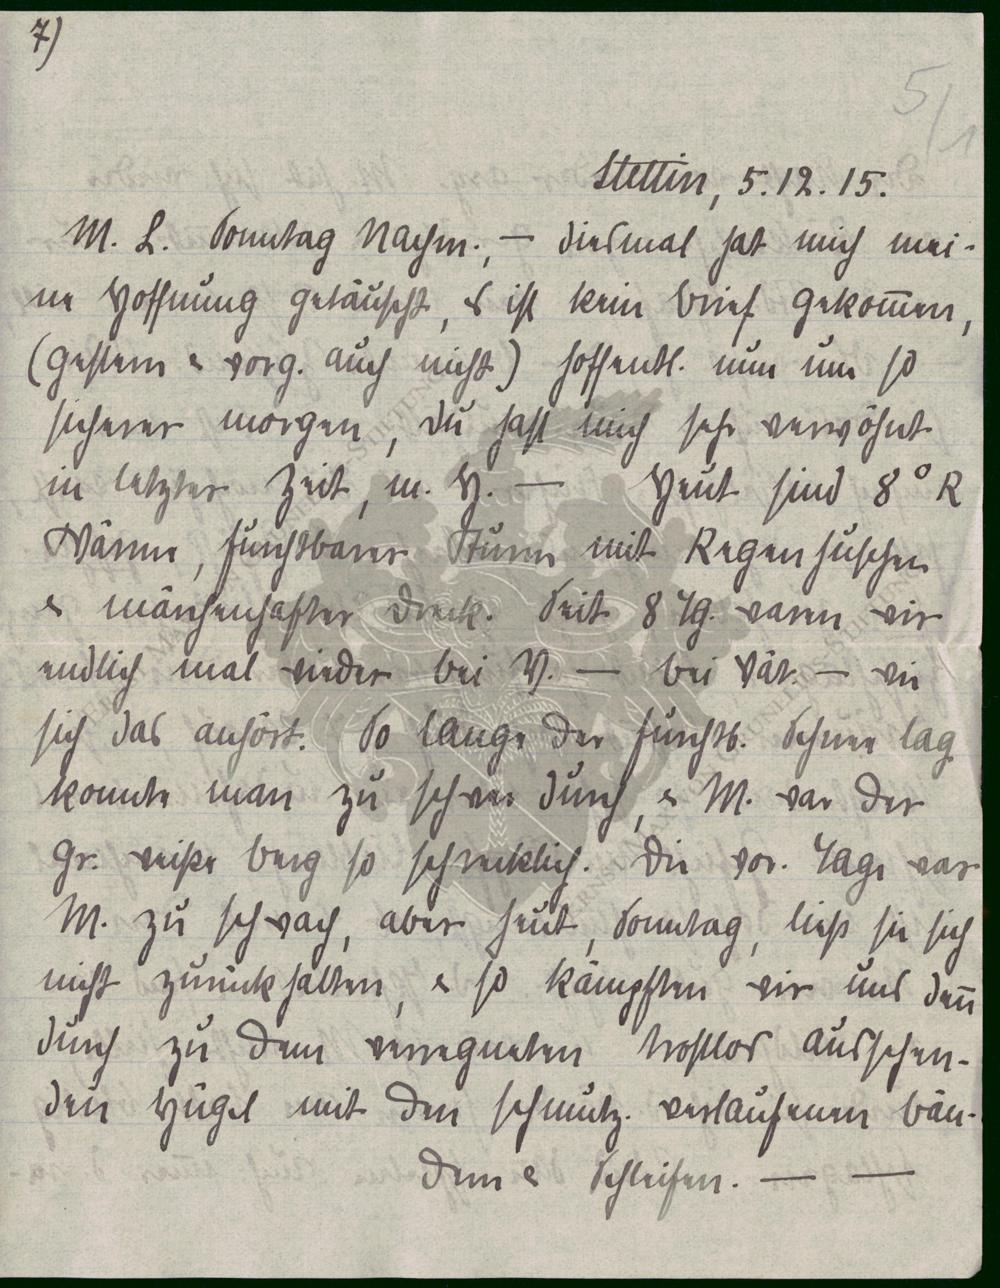 7)
5/1
Stettin, 5.12.15.
M. L. Sonntag Nachm., — diesmal hat mich mei-
ne Hoffnung getäuscht, es ist kein Brief gekom̅en,
(gestern & vorg. auch nicht) hoffentl. nun um so
sicherer morgen, du hast mich sehr verwöhnt
in letzter Zeit, m. H. — Heut sind 8° R
Wärme, furchtbarer Sturm mit Regenhuschen
& märchenhafter Dreck. Seit 8 Tg. waren wir
endlich mal wieder bei V. — bei Vät. — wie
sich das anhört. So lange der furchtb. Schnee lag
konnte man zu schwer durch, & M. war der
gr. weiße Berg so schrecklich. Die vor. Tage war
M. zu schwach, aber heut, Sonntag, ließ sie sich
nicht zurückhalten, & so kämpften wir uns den̅
durch zu dem verregneten trostlos aussehen-
den Hügel mit den schmutz. verlaufenen Bän-
dern & Schleifen. — —